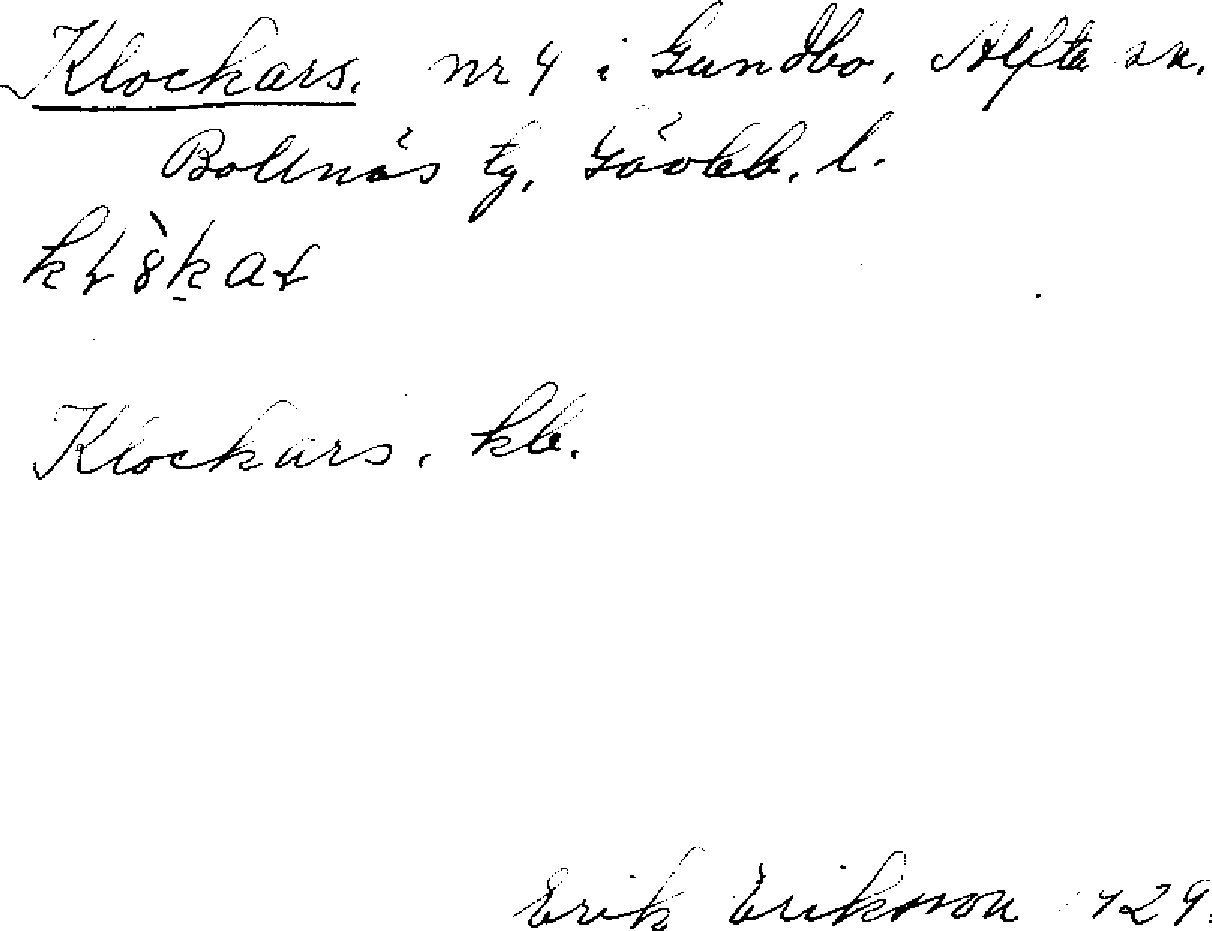 Klockars. nr 4 i Gundbo, Alfta sn.
Bollnäs tg, Gävleb. l.
Klockars. kb.
Erik Eriksson 1929.